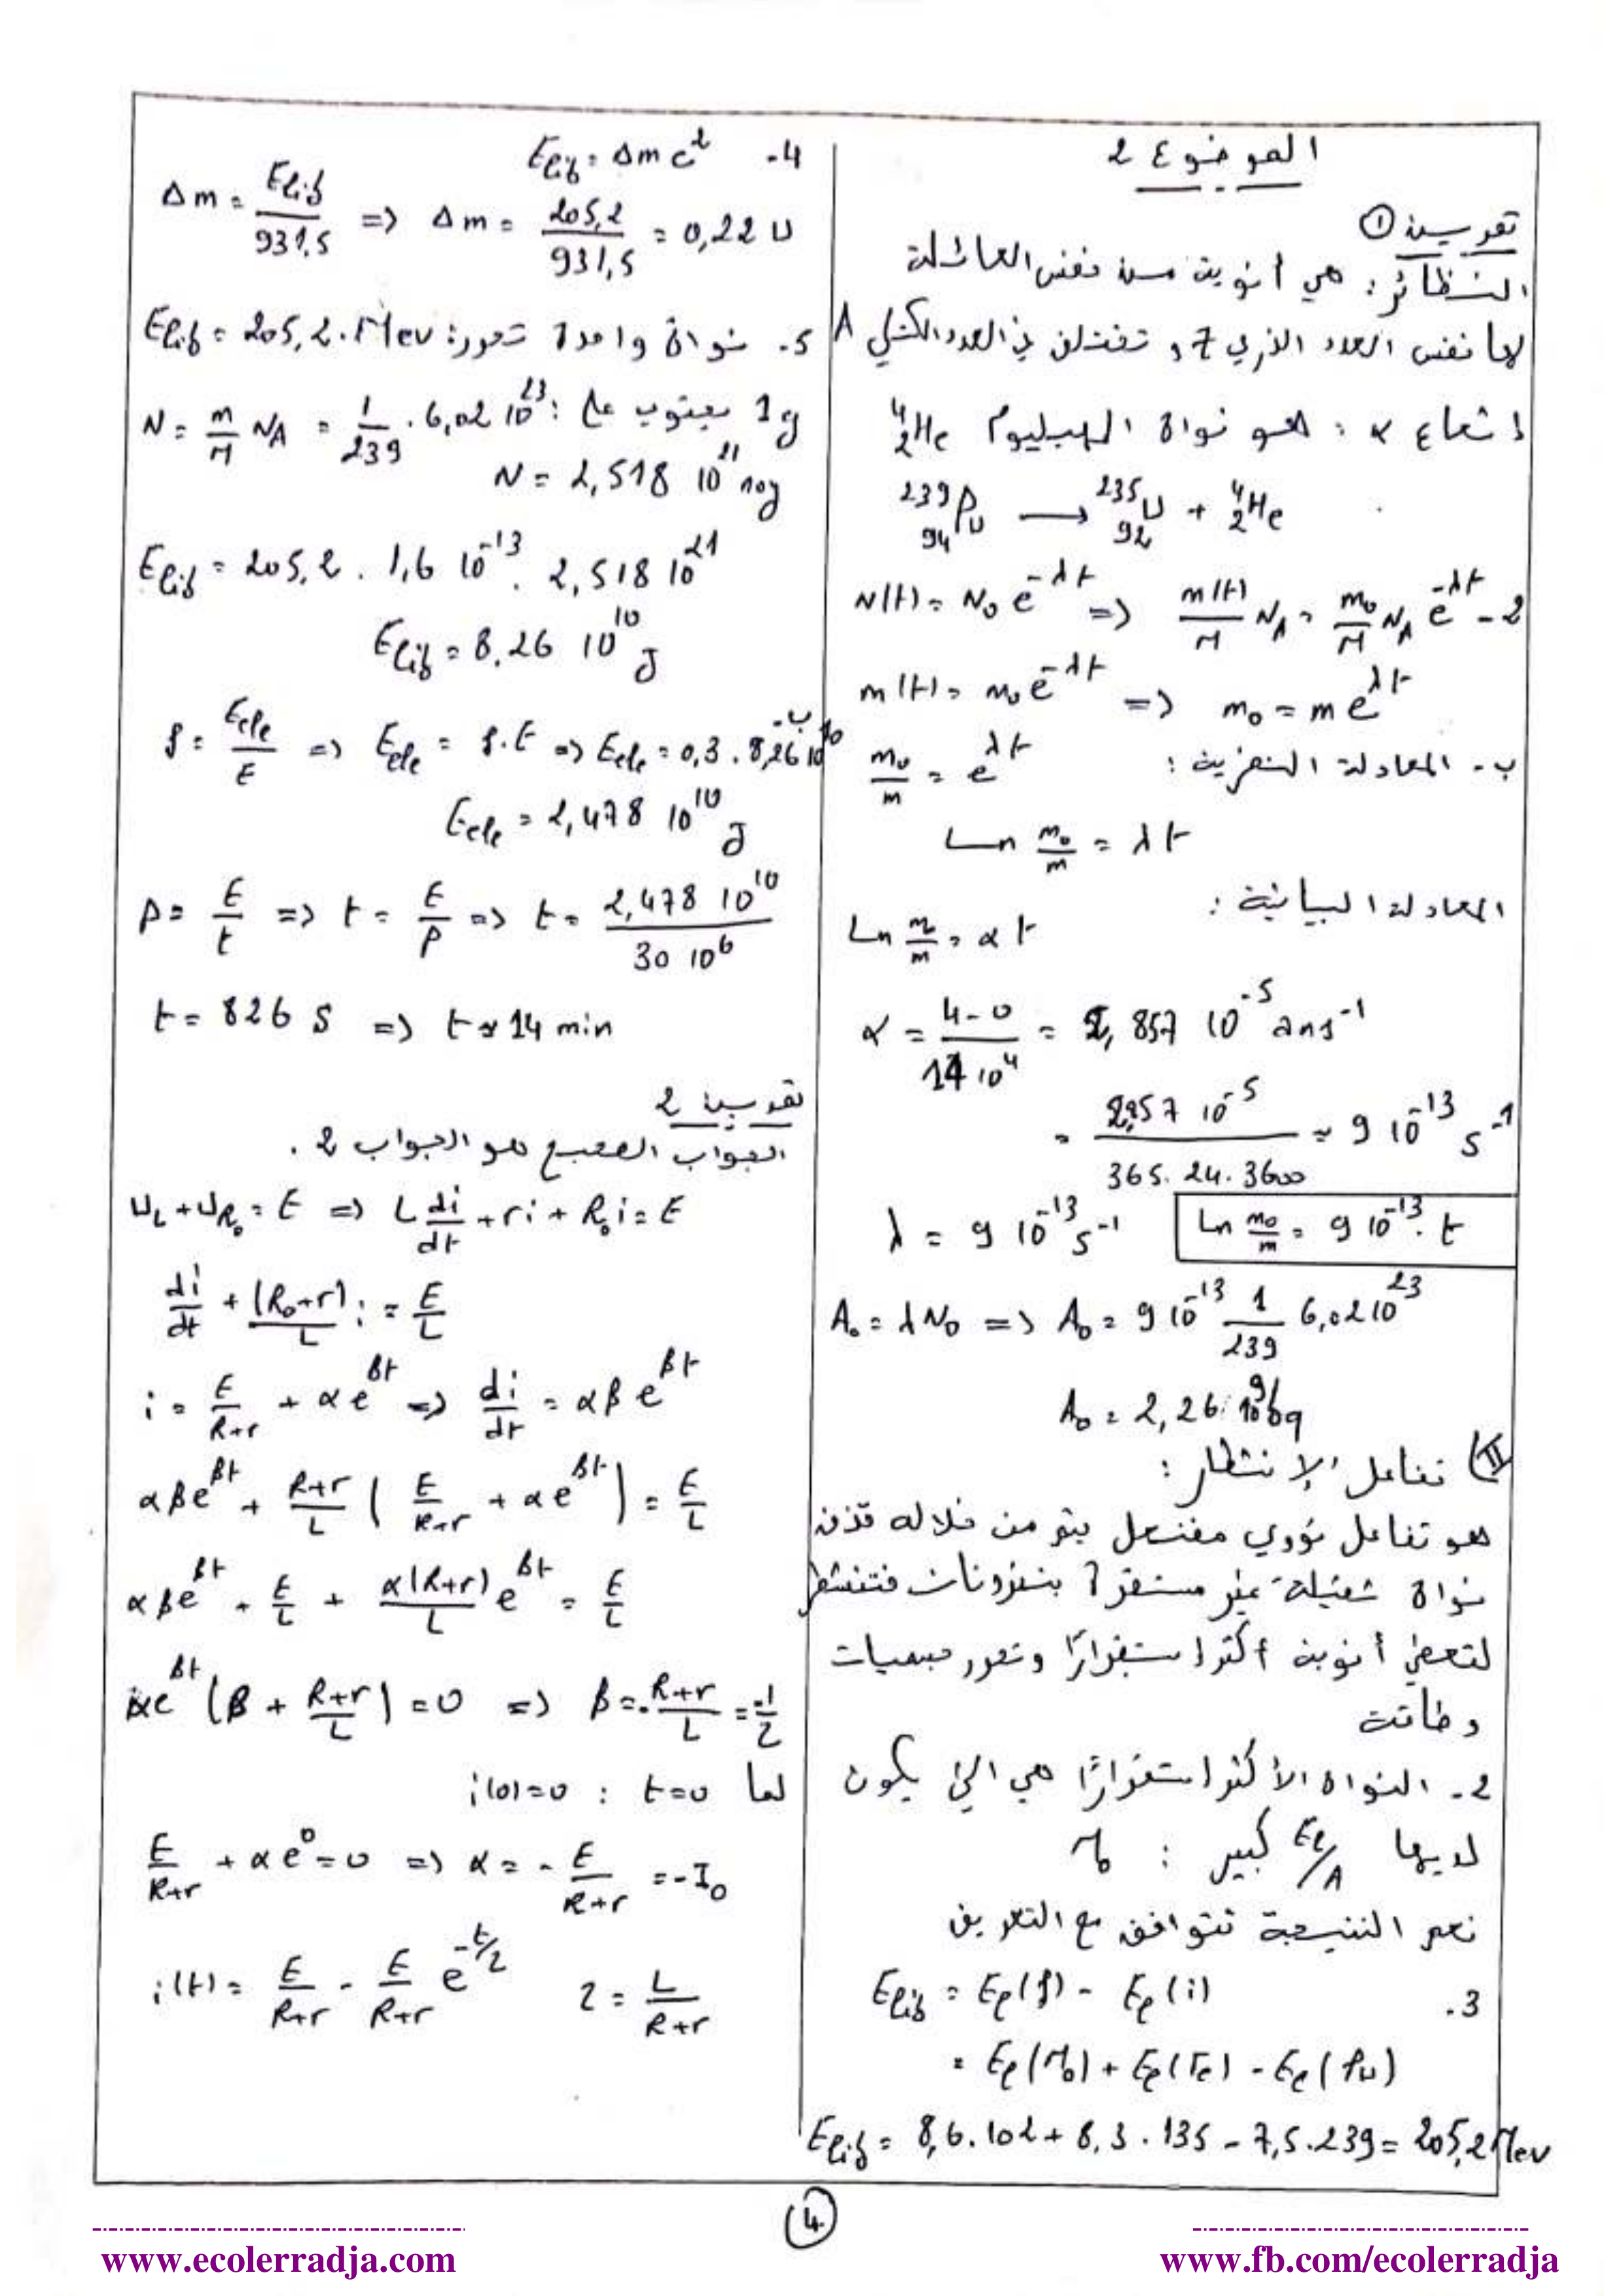 الموضوع 2
تمرين ①
النظائر: هي أنوية من نفس العائلة
لها نفس العدد الذري Z و تختلف في العدد الكتلي A
إشعاع α : هو نواة الهيليوم ⁴₂He
²³⁹₉₄Pu → ²³⁵₉₂U + ⁴₂He
2 - N(t) = N₀ e^-λt => m(t)/M N_A = m₀/M N_A e^-λt
m(t) = m₀ e^-λt => m₀ = m e^λt
ب - المعادلة النظرية : m₀/m = e^λt
Ln m₀/m = λt
المعادلة البيانية :
Ln m₀/m = α t
α = 4-0 / 14 10⁴ = 2,857 10⁻⁵ ans⁻¹
= 2,857 10⁻⁵ / 365. 24. 3600 ≈ 9 10⁻¹³ s⁻¹
λ = 9 10⁻¹³ s⁻¹ Ln m₀/m = 9 10⁻¹³. t
A₀ = λ N₀ => A₀ = 9 10⁻¹³ 1/239 6,02 10²³
A₀ = 2,26 10⁹ bq
II) تفاعل الإنشطار :
هو تفاعل نووي مفتعل يتم من خلاله قذف
نواة ثقيلة غير مستقرة بنترونات فتنشطر
لتعطي أنوية أكثر استقرارًا وتحرر جسيمات
وطاقة
2 - النواة الأكثر استقرارًا هي التي يكون
لديها El/A كبير : Mo
نعم النتيجة تتوافق مع التعريف
3. Elib = El(f) - El(i)
= El(Mo) + El(Te) - El(Pu)
Elib = 8,6.102 + 8,3.135 - 7,5.239 = 205,2 Mev
4- Elib = Δm c²
Δm = Elib/931,5 => Δm = 205,2/931,5 = 0,22 U
5. نواة واحدة تحرر: Elib = 205,2. Mev
1g يحتوي على : N = m/M N_A = 1/239 . 6,02 10²³
N = 2,518 10²¹ noy
Elib = 205,2 . 1,6 10⁻¹³. 2,518 10²¹
Elib = 8,26 10¹⁰ J
ب- ρ = Eele/E => Eele = ρ.E => Eele = 0,3 . 8,26 10¹⁰
Eele = 2,478 10¹⁰ J
P = E/t => t = E/P => t = 2,478 10¹⁰ / 30 10⁶
t = 826 S => t ≈ 14 min
تمرين 2
الجواب الصحيح هو الجواب 2 .
U_L + U_R₀ = E => L di/dt + ri + R₀i = E
di/dt + (R₀+r)/L i = E/L
i = E/R+r + α e^βt => di/dt = αβ e^βt
αβe^βt + R+r/L ( E/R+r + αe^βt ) = E/L
αβe^βt + E/L + α(R+r)/L e^βt = E/L
αe^βt (β + R+r/L) = 0 => β = - R+r/L = -1/τ
لما t=0 : i(0)=0
E/R+r + α e⁰ = 0 => α = - E/R+r = -I₀
i(t) = E/R+r - E/R+r e^-t/τ τ = L/R+r
4
www.ecolerradja.com
www.fb.com/ecolerradja